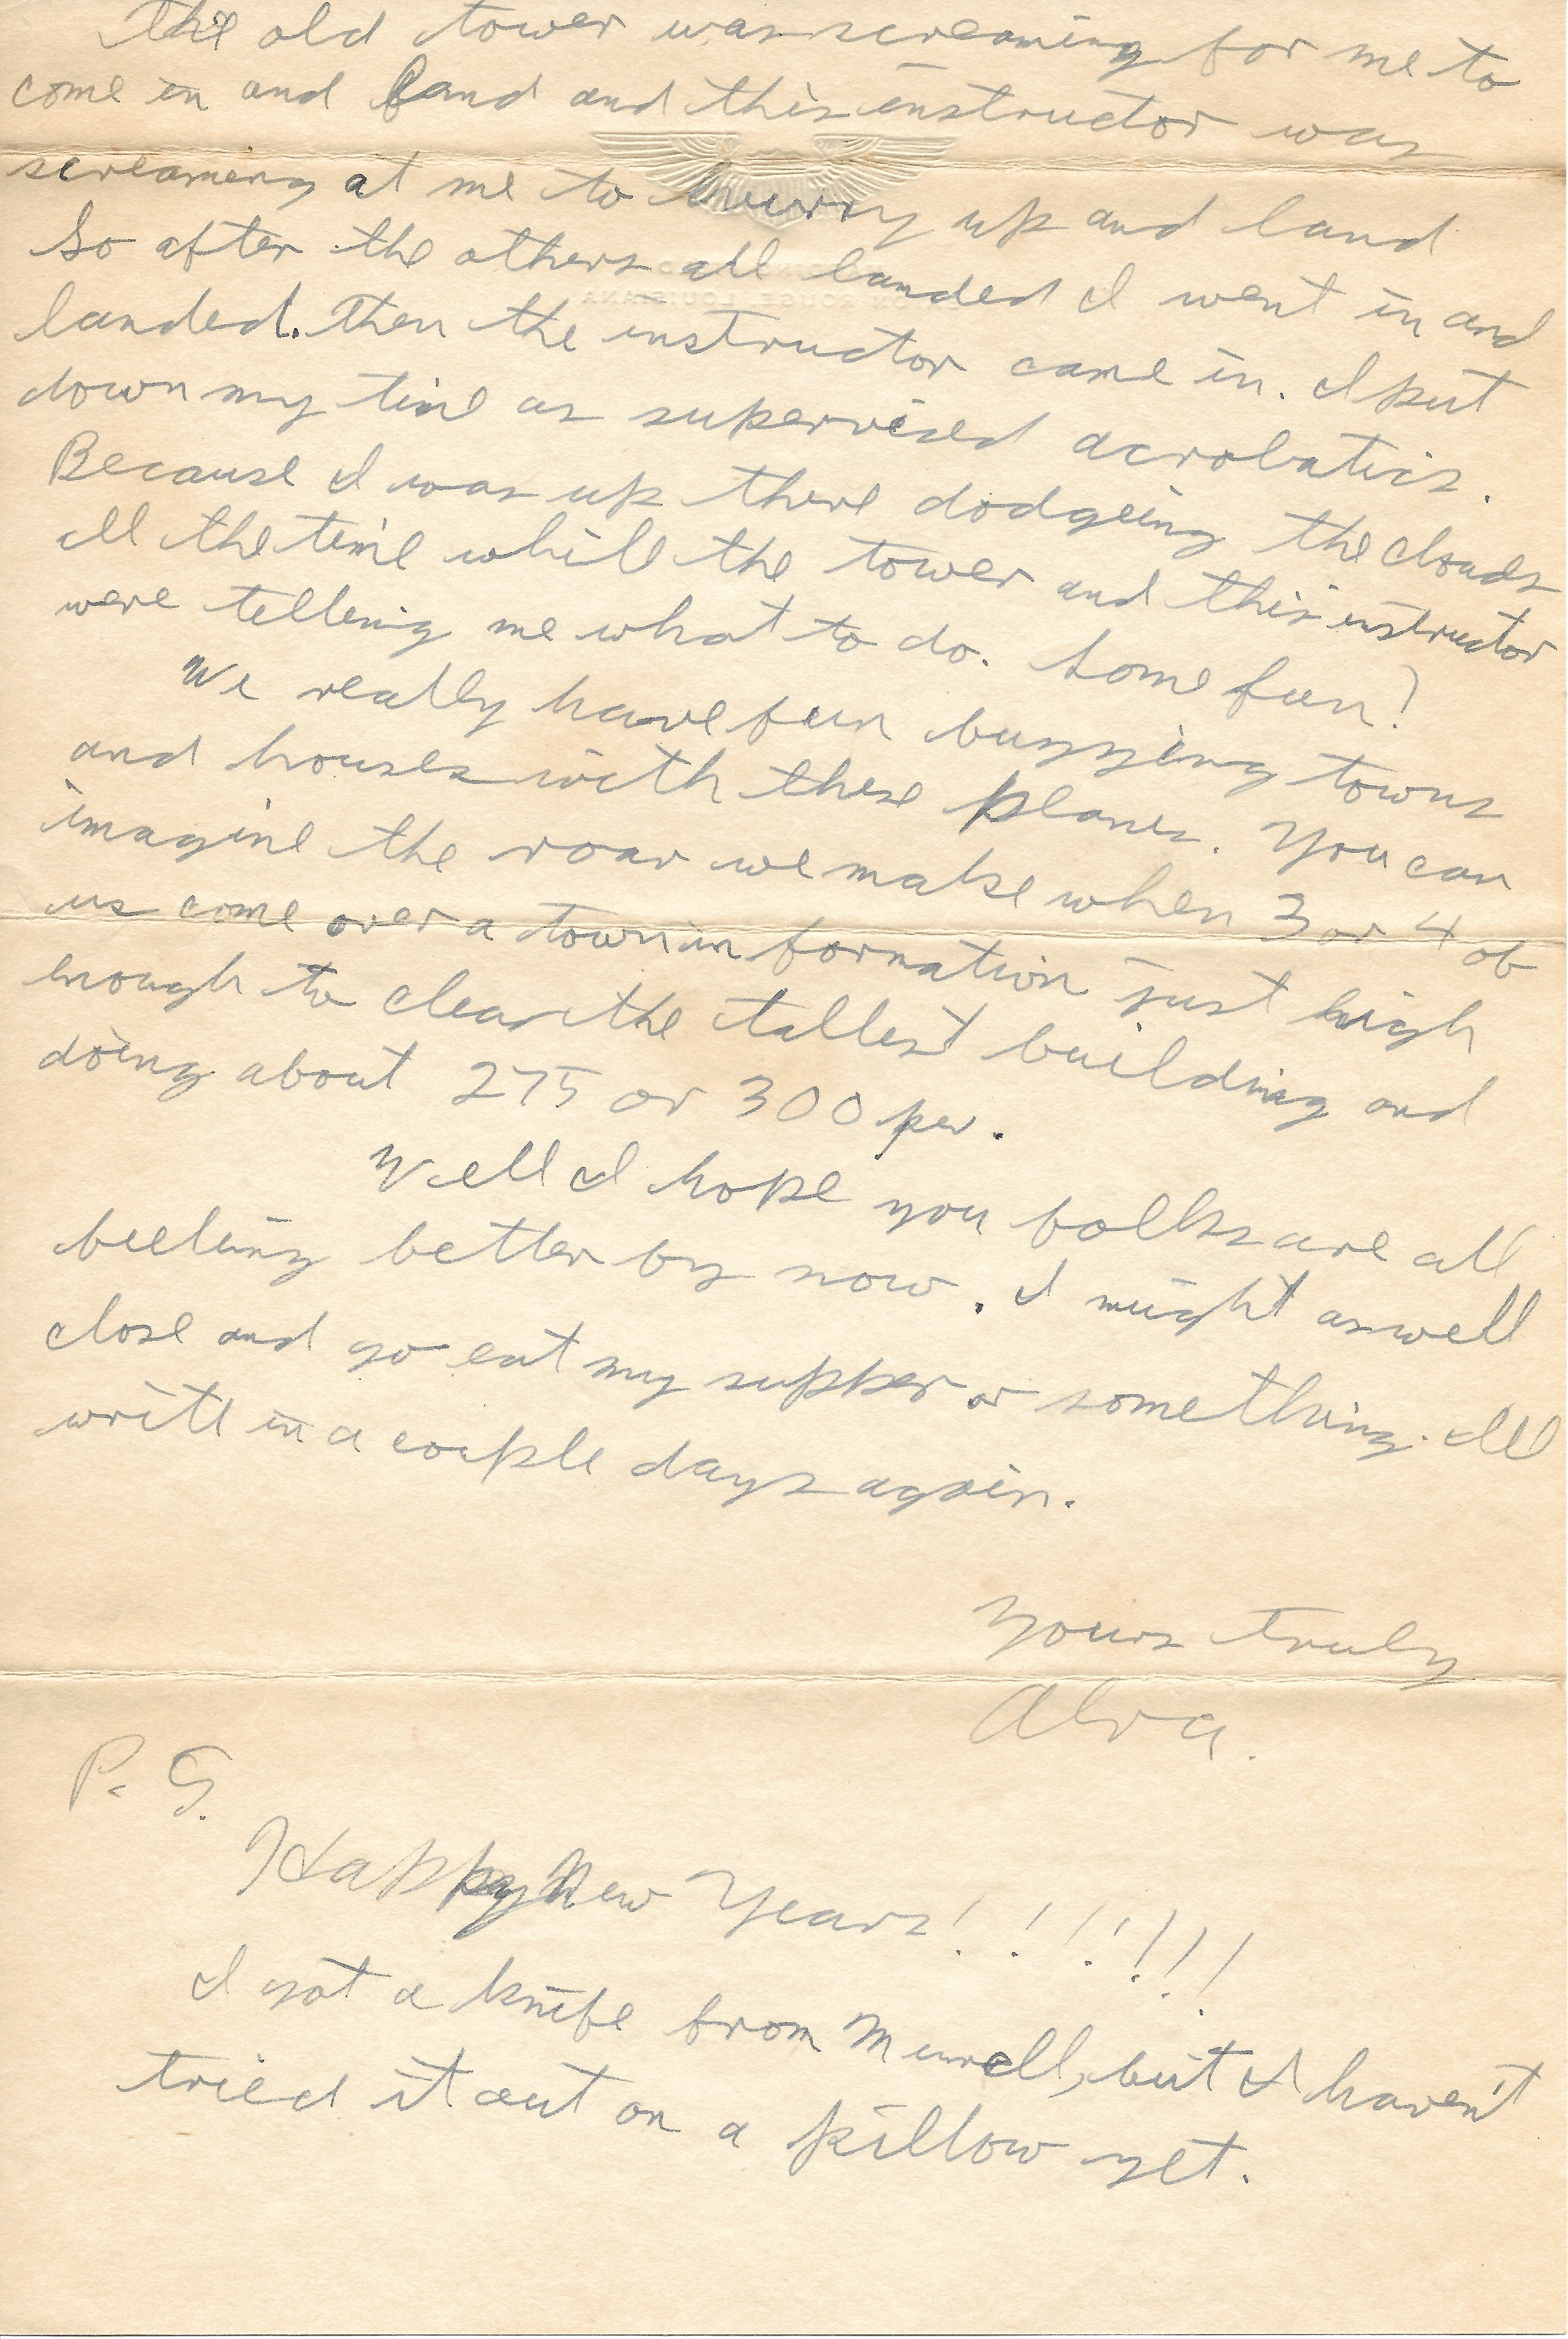 The old tower was screaming for me to
come in and land and this instructor was
screaming at me to hurry up and land
So after the others all landed I went in and
landed. Then the instructor came in. I put
down my time as supervised acrobatics.
Because I was up there dodgeing the clouds
all the time while the tower and this instructor
were telling me what to do. Some fun!
We really have fun buzzing towns
and houses with these planes. You can
imagine the roar we make when 3 or 4 of
us come over a town in formation just high
enough to clear the tallest building and
doing about 275 or 300 per.
Well I hope you folks are all
feeling better by now. I might as well
close and go eat my supper or something. Ill
write in a couple days again.
Yours truly
Alva.
P. S.
Happy New Years!!!!!!!
I got a knife from Murell, but I haven't
tried it out on a pillow yet.